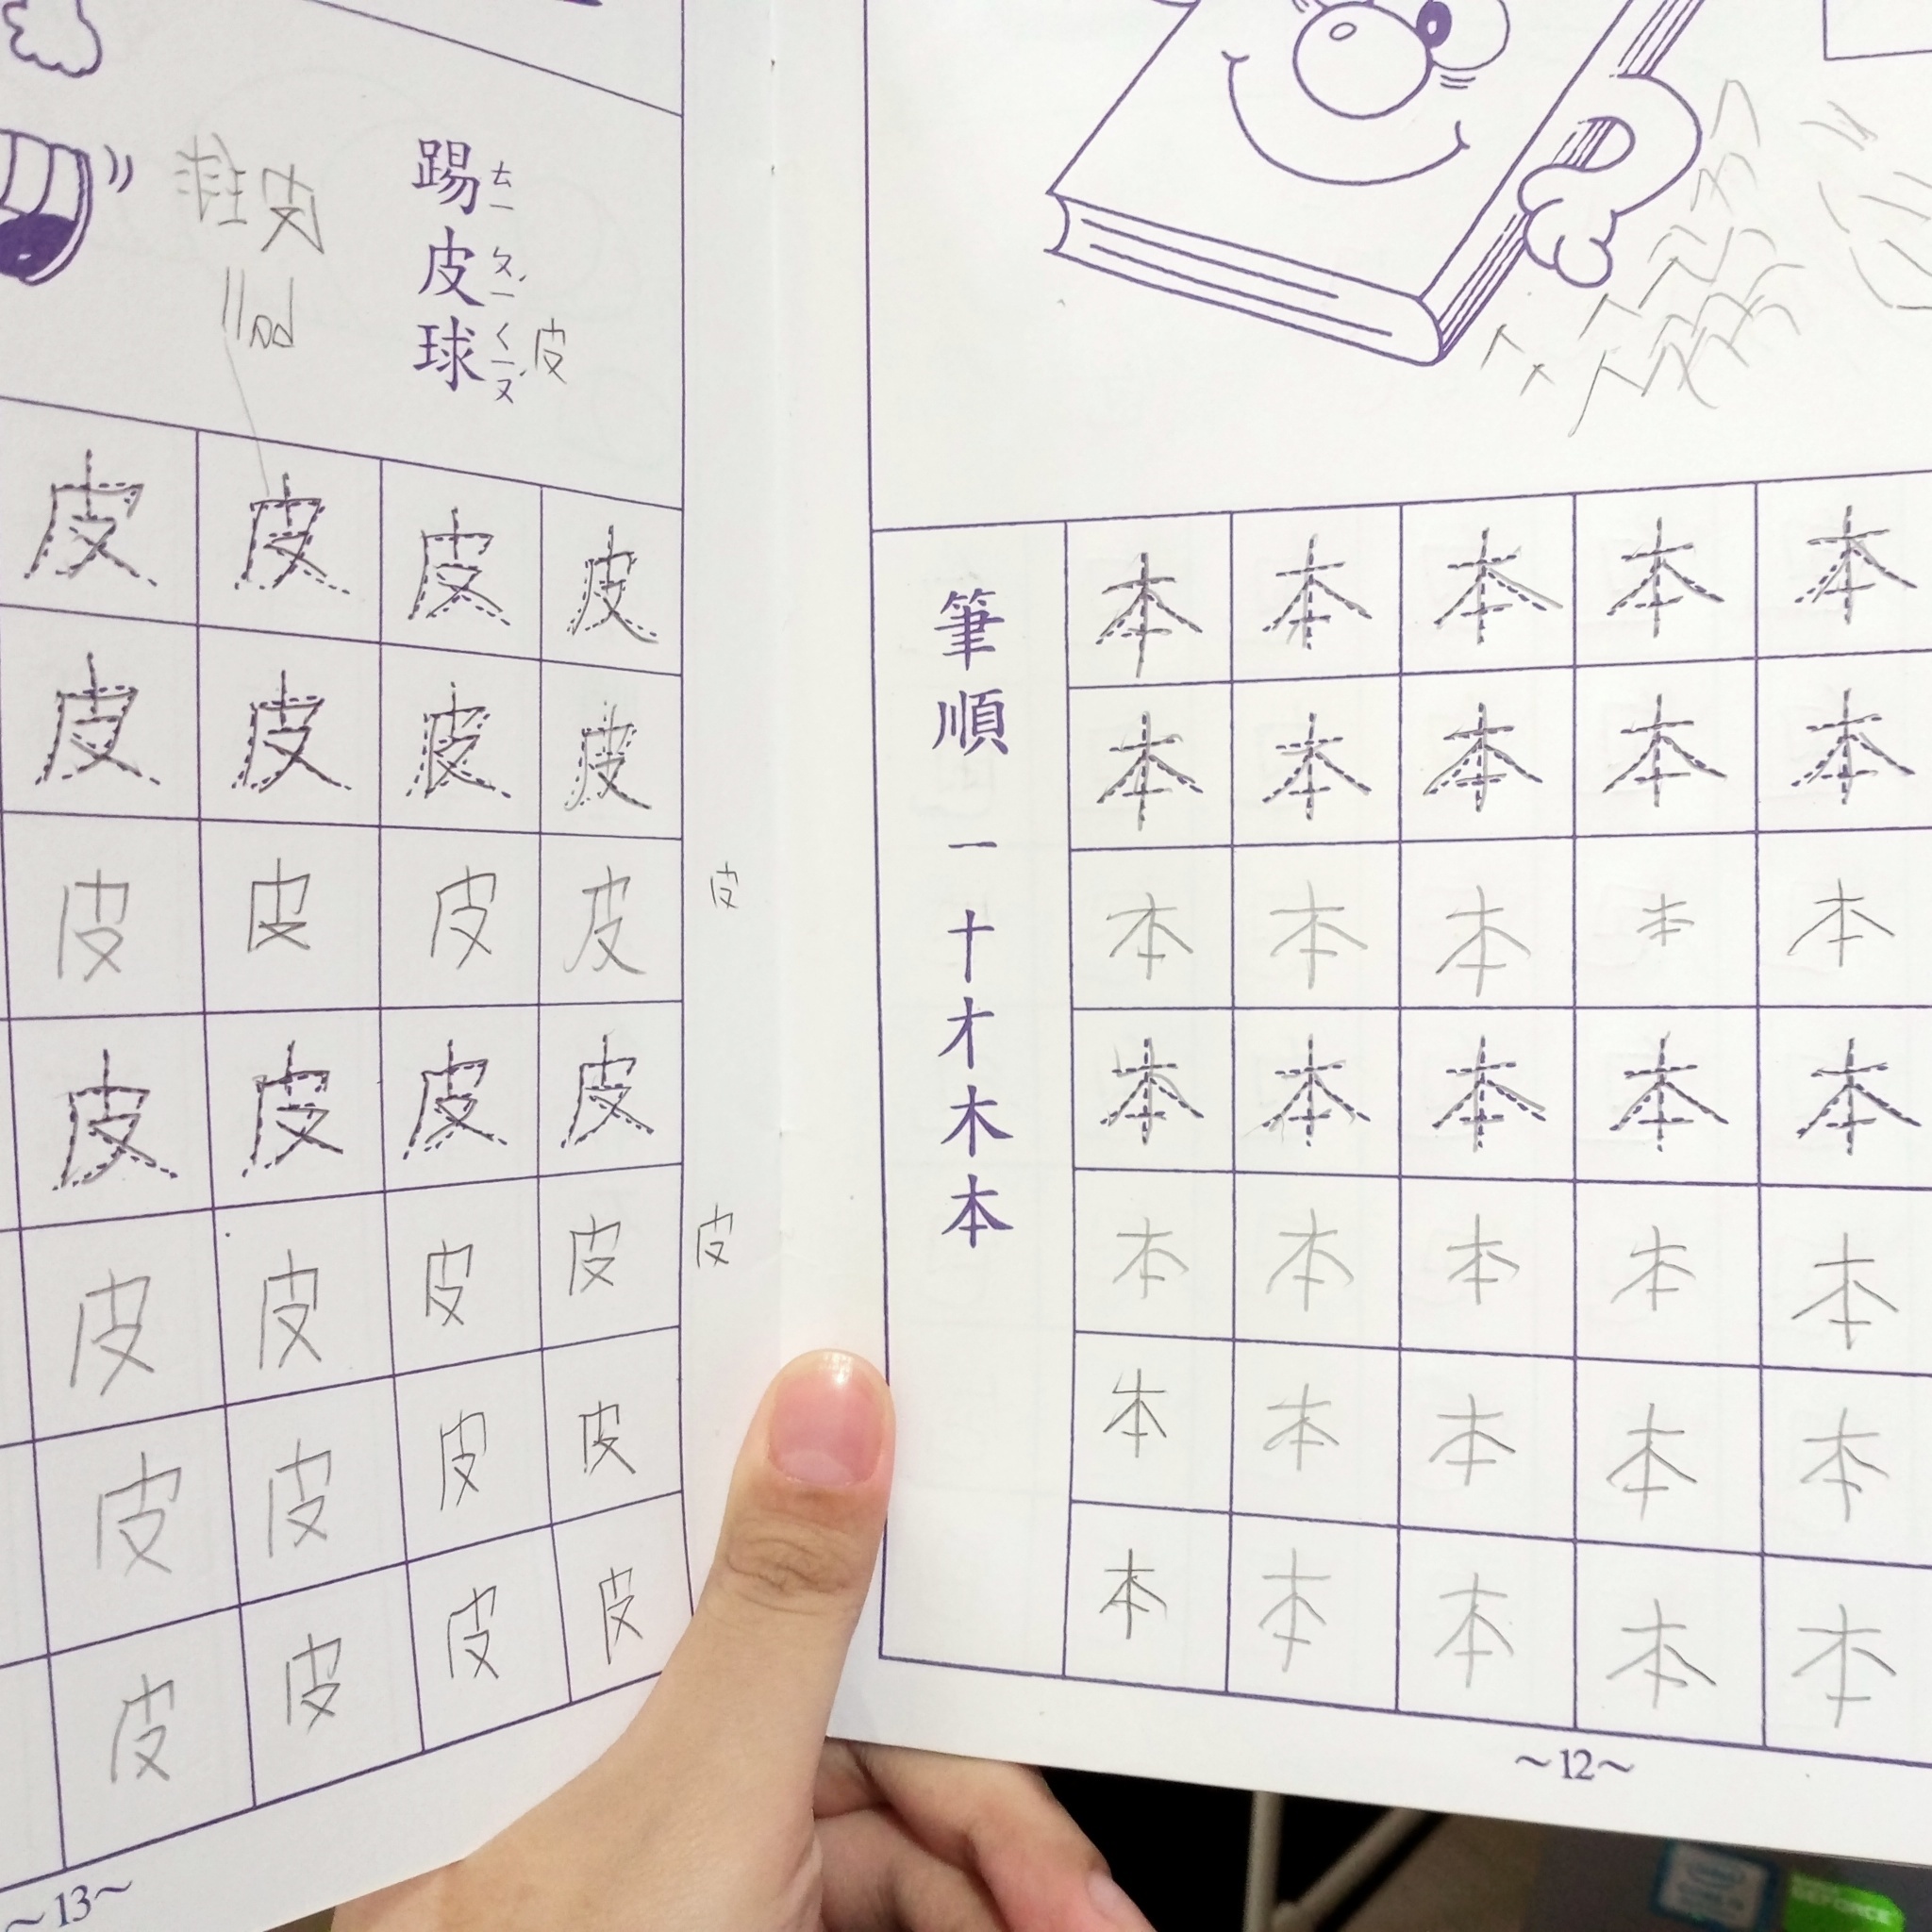 筆順 一 十 才 木 本
本 本 本 本 本
本 本 本 本 本
本 本 本 本 本
本 本 本 本 本
本 本 本 本 本
本 本 本 本 本
本 本 本 本 本
~12~
踢皮球
ㄊㄧ ㄆㄧˊ ㄑㄧㄡˊ
皮
皮 皮 皮 皮
皮 皮 皮 皮
皮 皮 皮 皮 皮
皮 皮 皮 皮
皮 皮 皮 皮 皮
皮 皮 皮 皮
皮 皮 皮 皮
~13~
GEFORCE